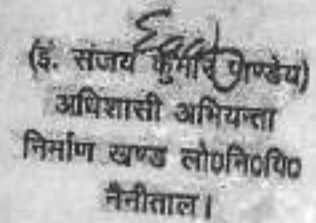 (इ. संजय कुमार पाण्डेय)
अधिशासी अभियन्ता
निर्माण खण्ड लो०नि०वि०
नैनीताल।